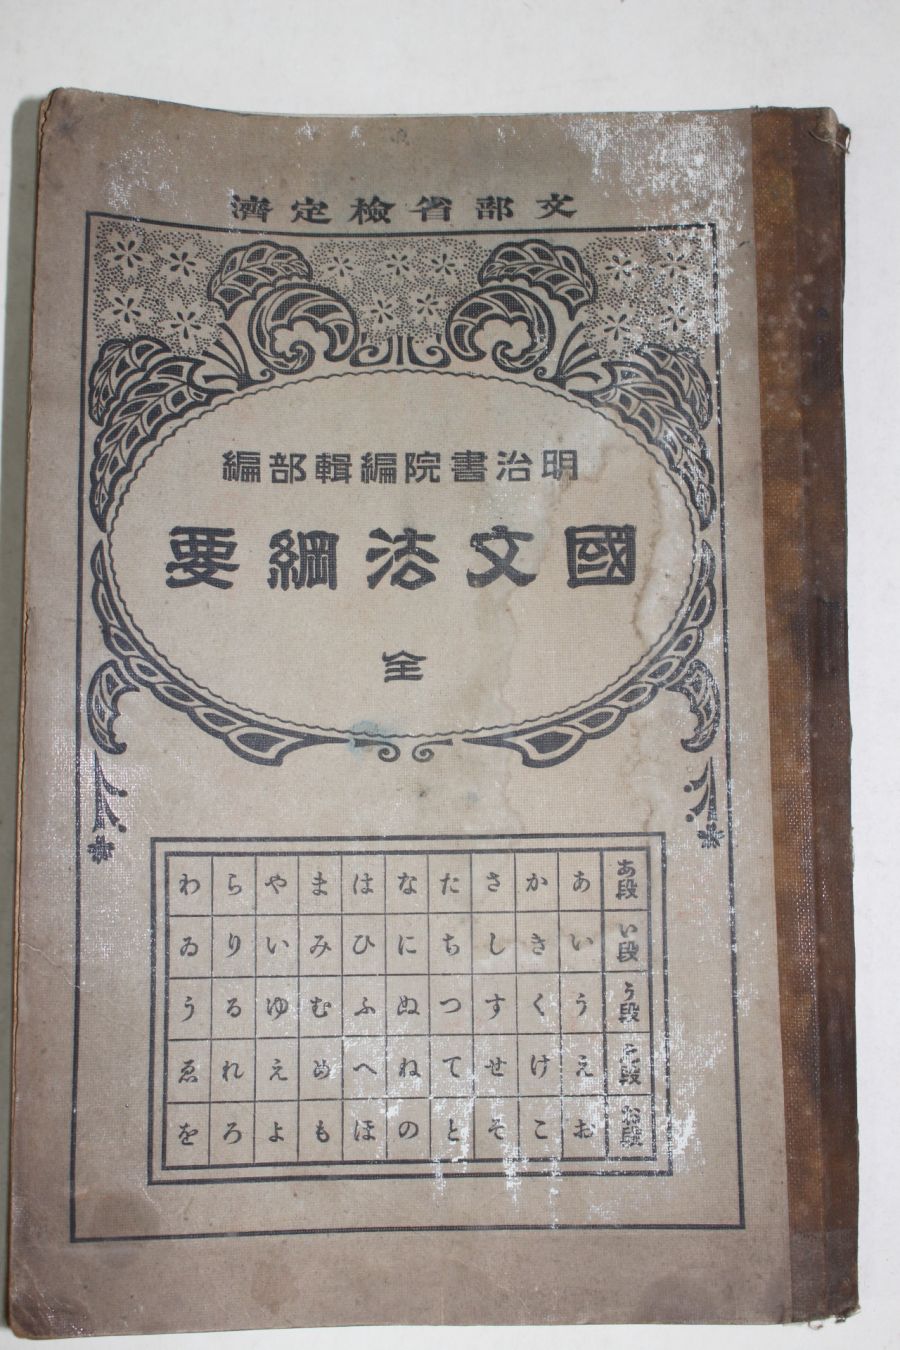 文部省檢定濟
明治書院編輯部編
國文法綱要
全
あ段 あ か さ た な は ま や ら わ
い段 い き し ち に ひ み い り ゐ
う段 う く す つ ぬ ふ む ゆ る う
え段 え け せ て ね へ め え れ ゑ
お段 お こ そ と の ほ も よ ろ を